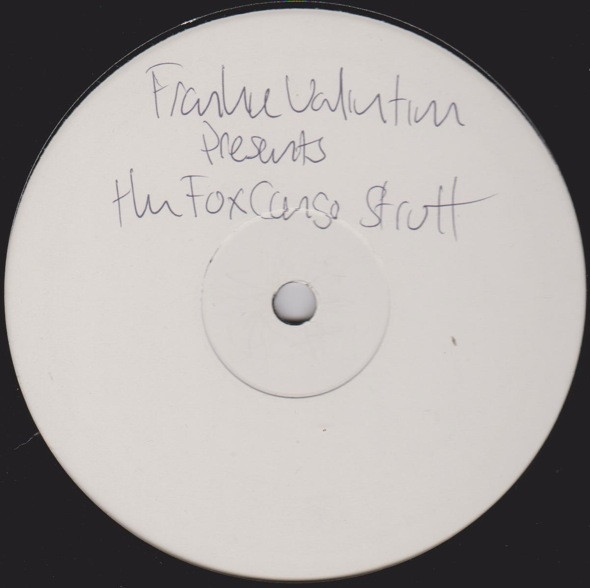 Frankie Valentine
Presents
the Fox Congo Strutt